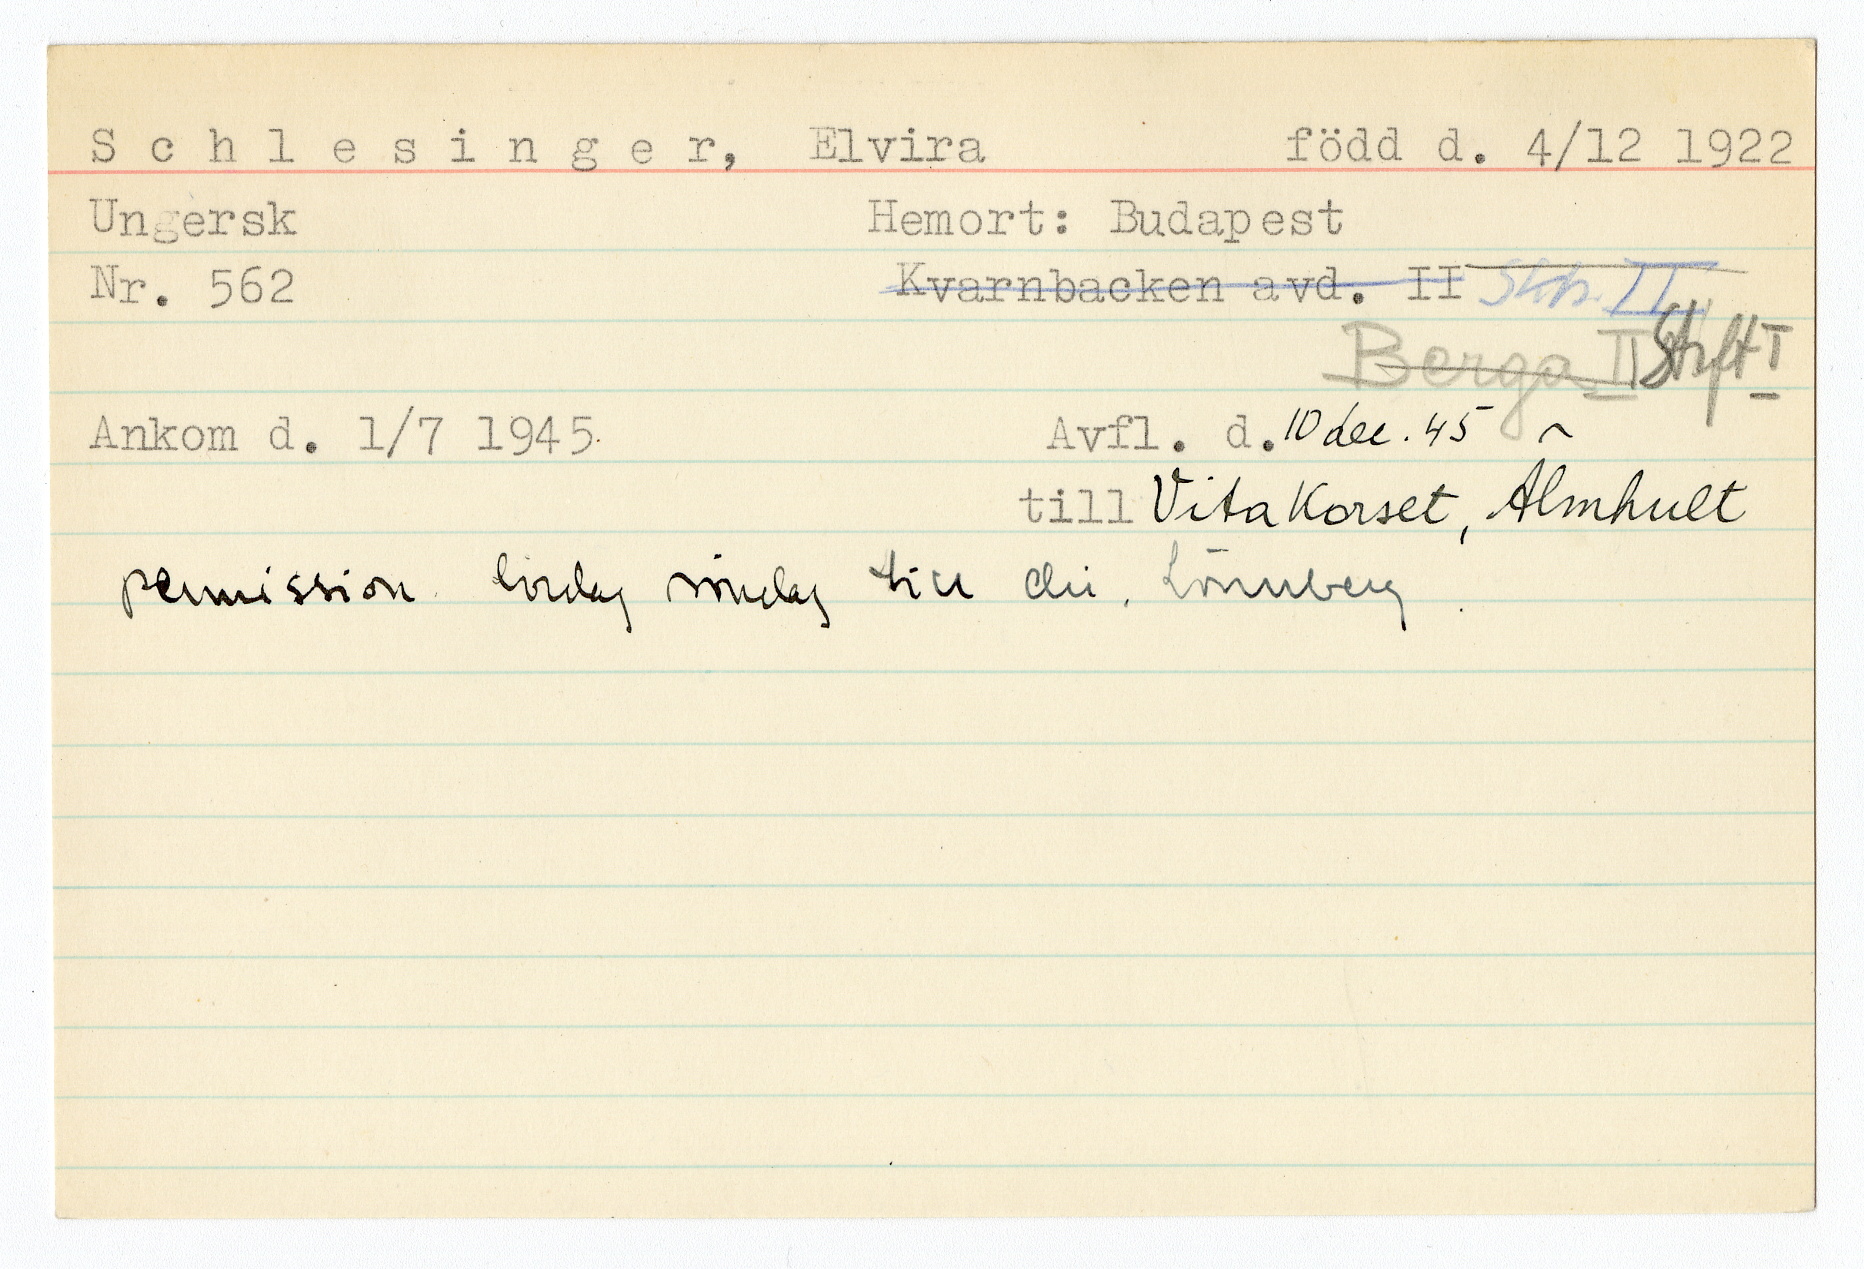 S c h l e s i n g e r, Elvira född d. 4/12 1922
Ungersk Hemort: Budapest
Nr. 562 Kvarnbacken avd. II II
Berga II Stift I
Ankom d. 1/7 1945. Avfl. d. 10 dec. 45
till Vita Korset, Älmhult
permission lördag söndag till dir. Lönnberg.